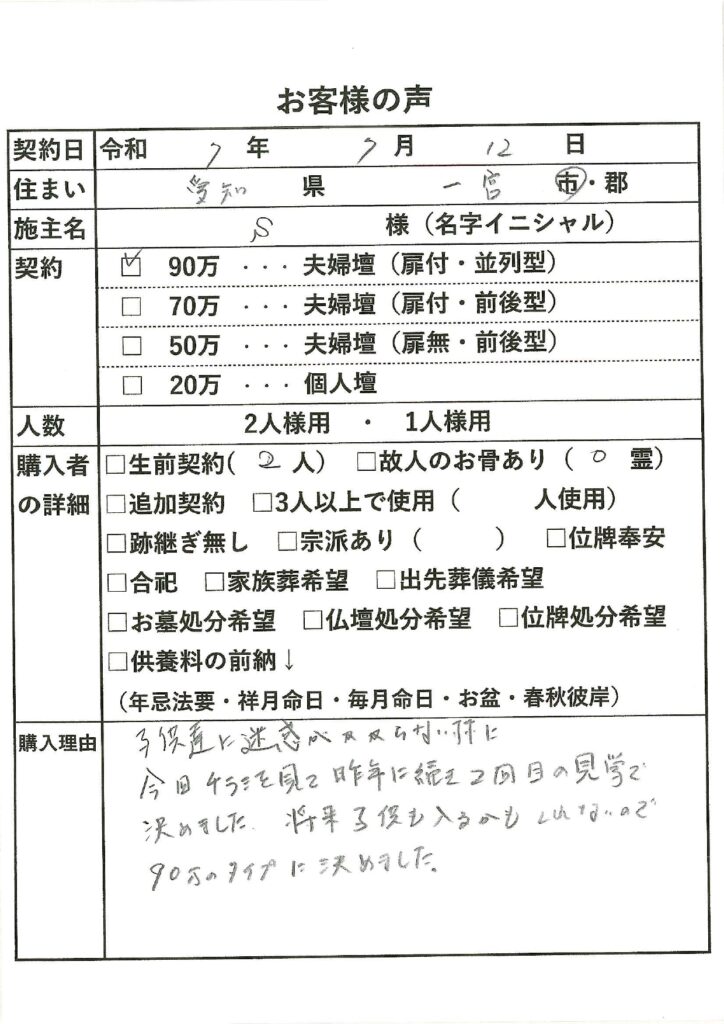 お客様の声
契約日 令和 7 年 7 月 12 日
住まい 愛知 県 一宮 市・郡
施主名 S 様（名字イニシャル）
契約 ☑ 90万 ･･･ 夫婦壇（扉付・並列型）
□ 70万 ･･･ 夫婦壇（扉付・前後型）
□ 50万 ･･･ 夫婦壇（扉無・前後型）
□ 20万 ･･･ 個人壇
人数 2人様用 ・ 1人様用
購入者の詳細 □生前契約( 2 人） □故人のお骨あり（ 0 霊）
□追加契約 □3人以上で使用（ 人使用）
□跡継ぎ無し □宗派あり（ ） □位牌奉安
□合祀 □家族葬希望 □出先葬儀希望
□お墓処分希望 □仏壇処分希望 □位牌処分希望
□供養料の前納↓
（年忌法要・祥月命日・毎月命日・お盆・春秋彼岸）
購入理由 子供達に迷惑がかからない様に
今回チラシを見て昨年に続き2回目の見学で
決めました。将来子供も入るかもしれないので
90万のタイプに決めました。